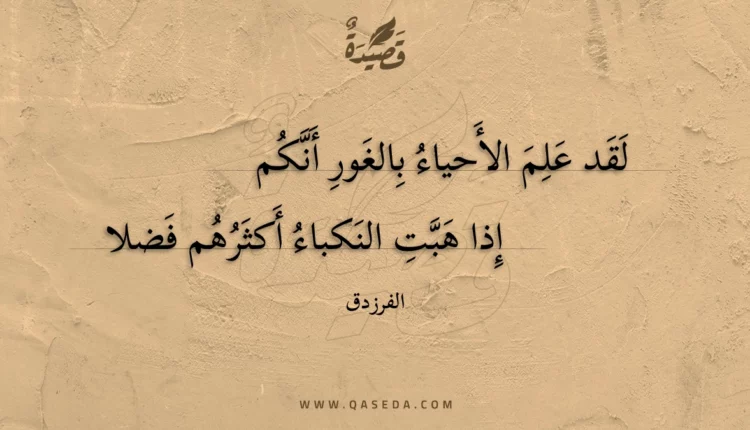 قَصِيدَةٌ
لَقَد عَلِمَ الأَحياءُ بِالغَورِ أَنَّكُم
إِذا هَبَّتِ النَكباءُ أَكثَرُهُم فَضلا
الفرزدق
WWW.QASEDA.COM